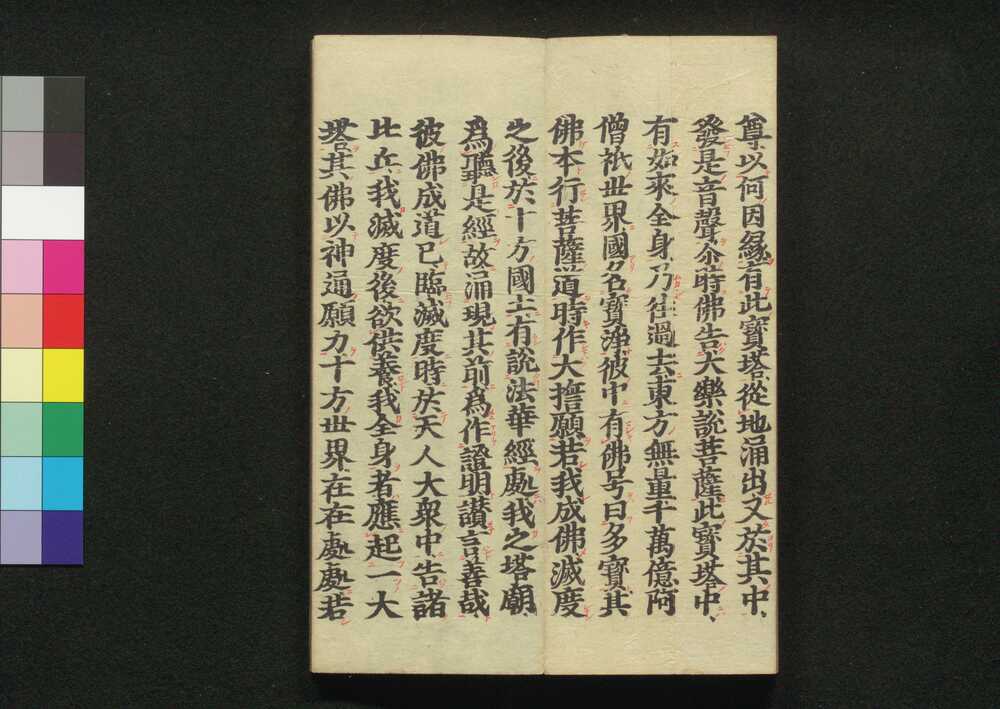 尊以何因縁有此寶塔從地涌出又於其中、
發是音聲尒時佛告大樂説菩薩此寶塔中、
有如來全身、乃往過去東方無量千萬億阿
僧祇世界國名寶淨彼中有佛号曰多寶其
佛本行菩薩道時作大擔願若我成佛滅度
之後於十方國土有說法華經處我之塔廟、
為聽是經故涌現其前為作證明讃言善哉、
彼佛成道已臨滅度時於天人大衆中告諸
比丘我滅度後欲供養我全身者應起一大
塔其佛以神通願力十方世界在在處處若